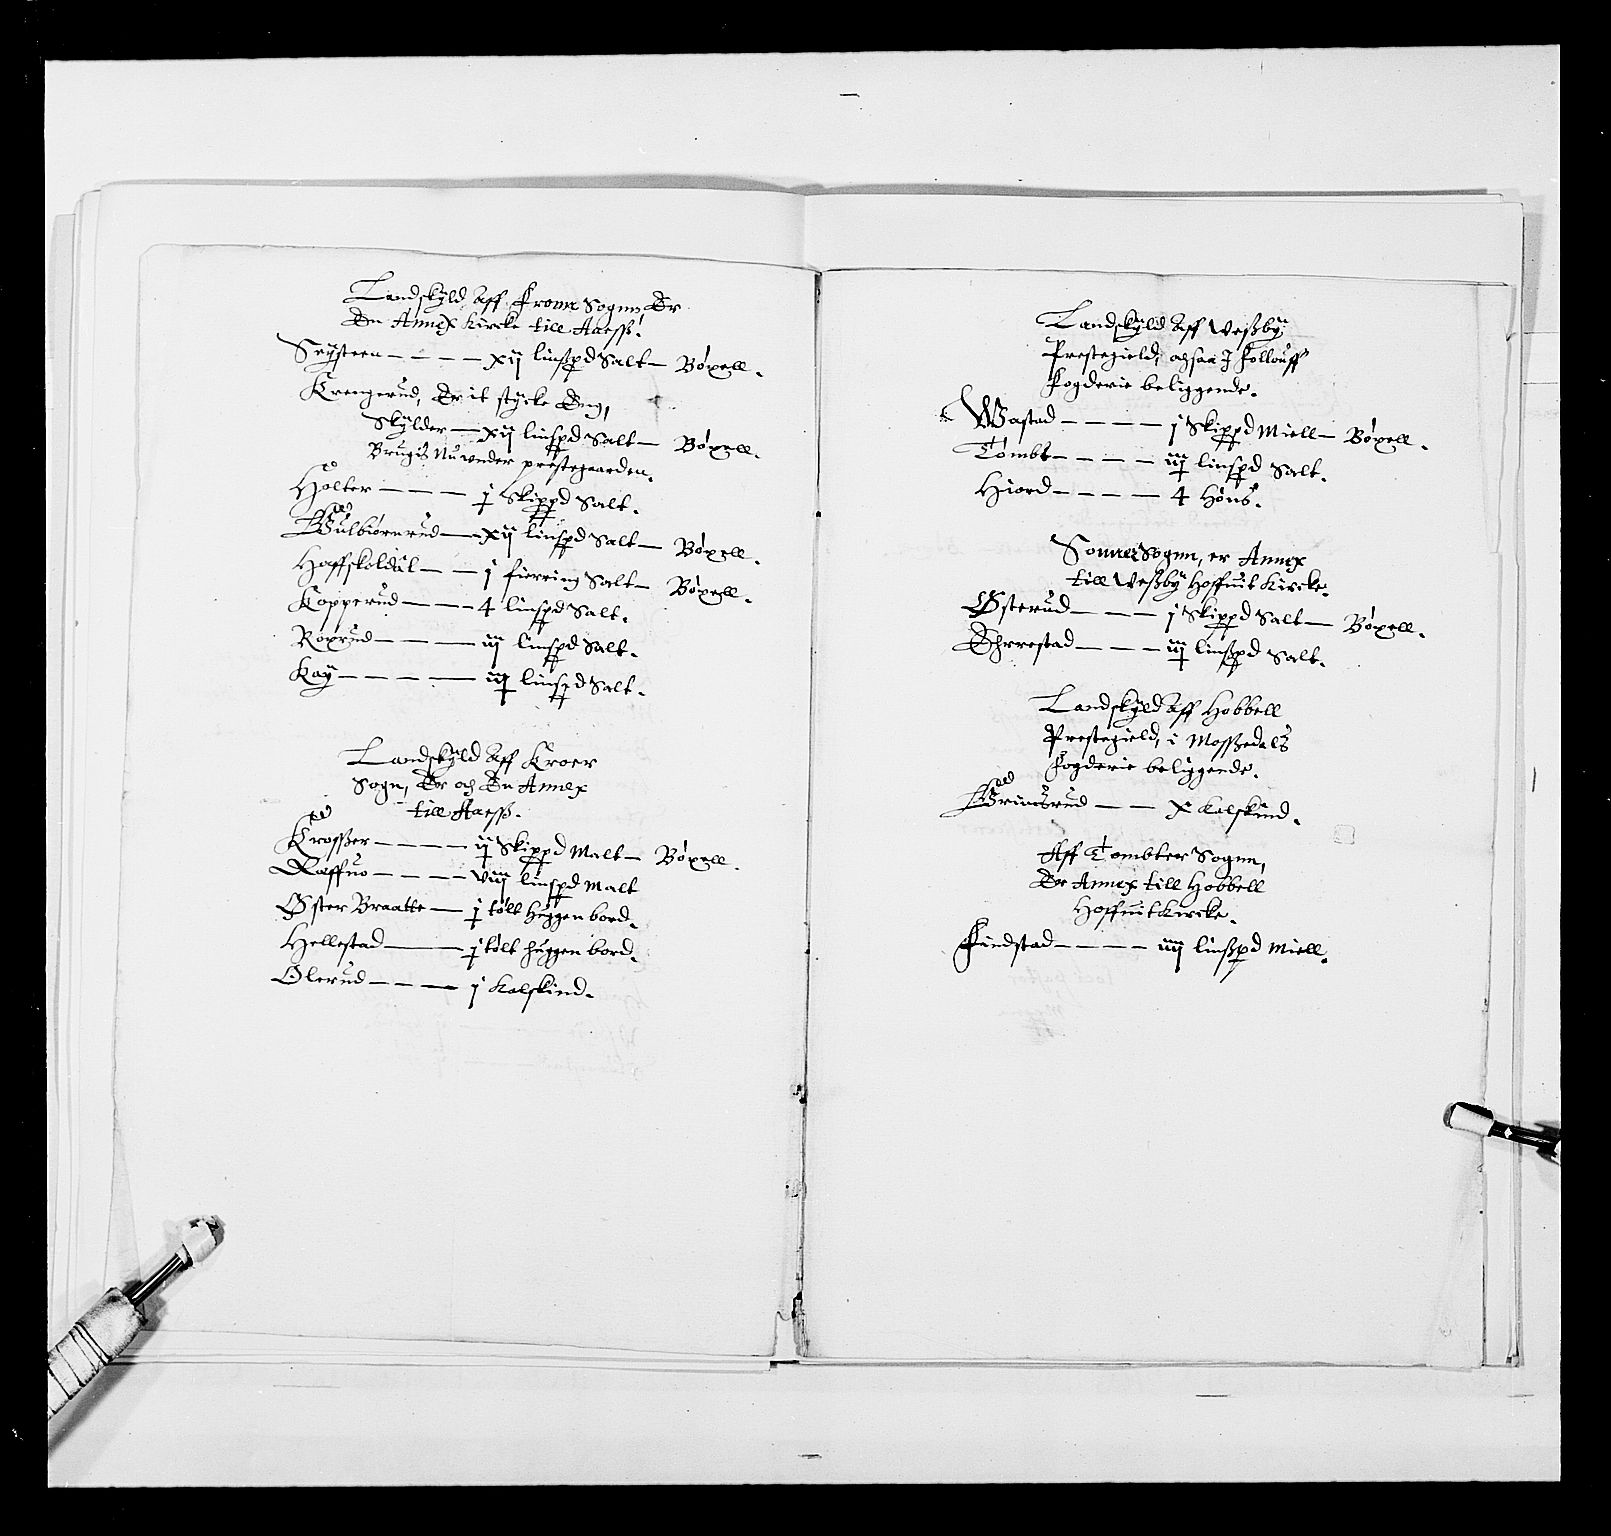 Landskÿld Aff Kroer Sogn, Er
En Annex Kircke till Aaesß.
Srÿsteen – – – – xij linspd Salt – Bøxell.
Krengerud, Er it stÿcke Eng,
Skÿlder – xij linspd Salt – Bøxell.
Brugis Nu vnder prestegaarden.
Holter – – – j Skippd Salt.
Wulbiørnrud – xij linspd Salt – Bøxell.
Haffskoldal – – j fierring Salt – Bøxell.
Kopperud – – – 4 linspd Salt.
Roxrud – – – – iij linspd Salt.
Kaÿ – – – – – iij linspd Salt.
Landskÿld Aff Kroer
Sogn, Er och En Annex
till Aaesß.
Krosßer – – – – ij Skippd Malt – Bøxell.
Ræffuo – – – – viij linspd Malt
Øster Braatte – j tølt huggen bord.
Hellestad – j tølt huggen bord.
Olerud – – – j Kalskind.
Landskÿld Aff Wesßbÿ
Prestegield, ochsaa J Follouff
Fogderie beliggende.
Wastad – – – – j Skippd Miell – Bøxell.
Tombt – – – – iij linspd Salt.
Hiord – – – – 4 Høns.
Sonner Sogn, er Annex
till Wesßbÿ Hoffuit Kircke.
Østerud – – – – j Skippd Salt – Bøxell.
Ehrrestad – – – iij linßpd Salt.
Landskÿld Aff Hobbell
Prestegield, i Mosßedals
Fogderie beliggende.
Grimsrud – – x Kalskind.
Aff Tombter Sogn,
Er Annex till Hobbell
Hoffuit Kircke.
Fundstad – – – – iiij linßpd Miell.